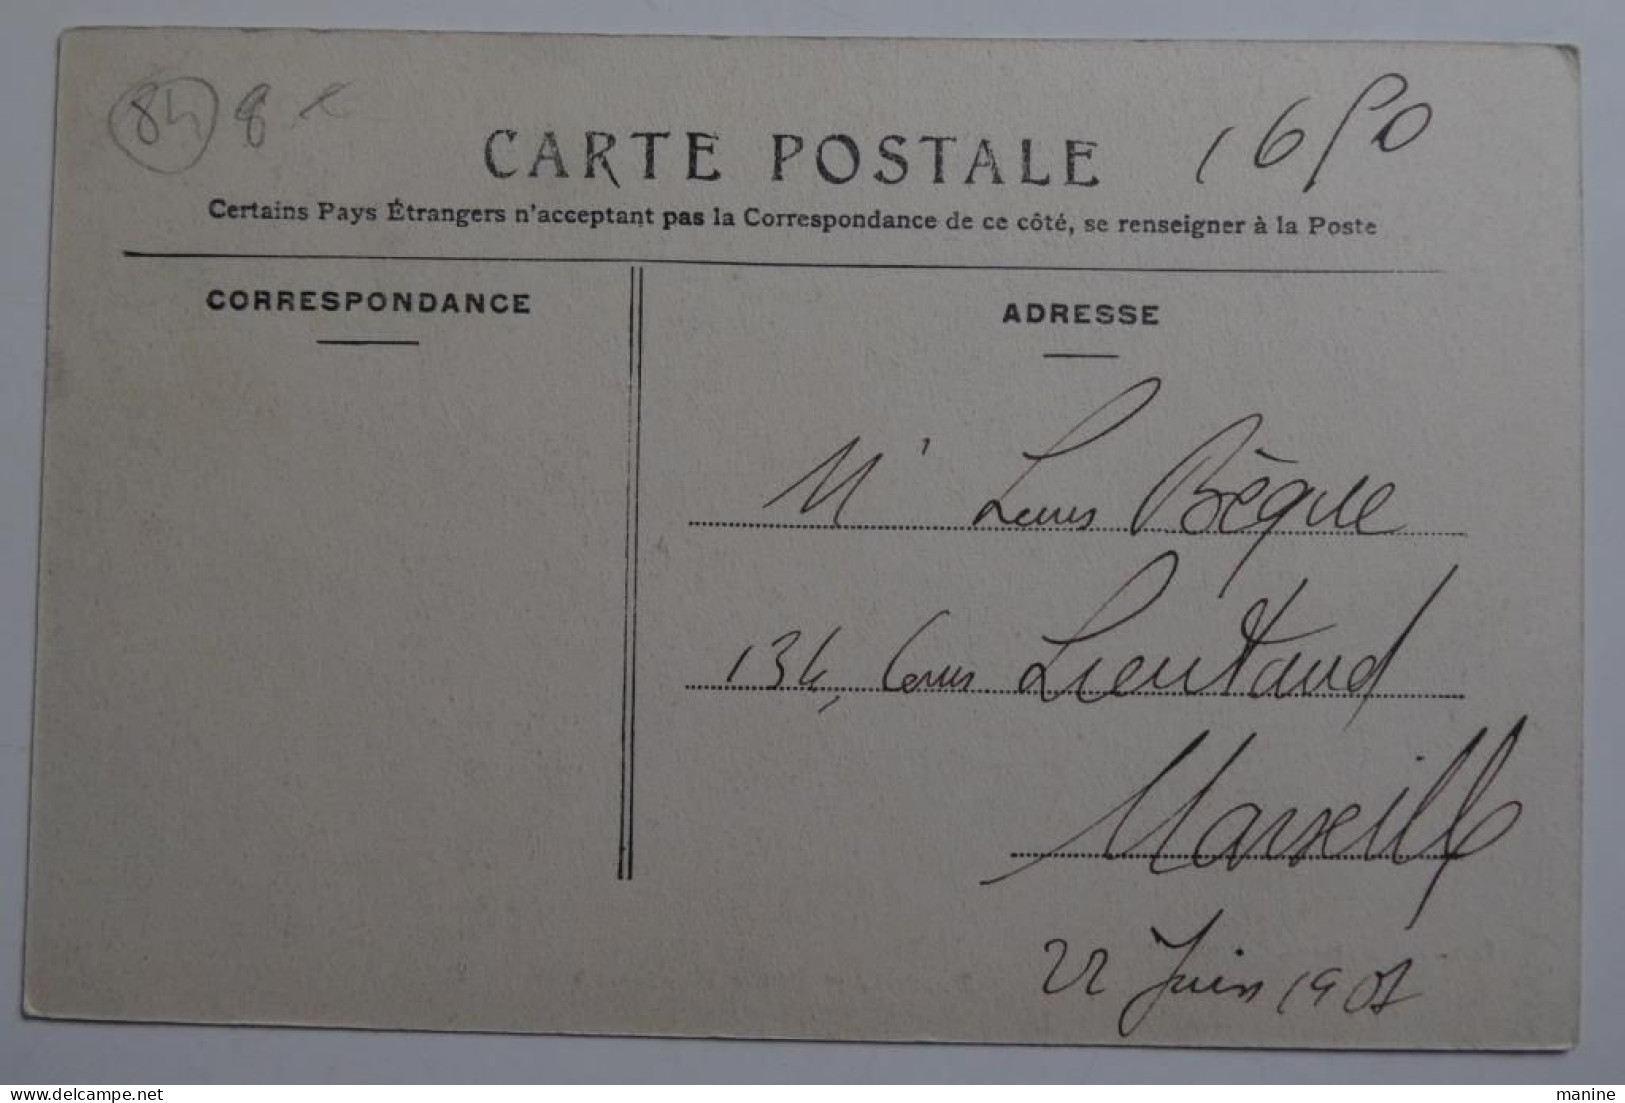 84 8 €
CARTE POSTALE
1650
Certains Pays Étrangers n'acceptant pas la Correspondance de ce côté, se renseigner à la Poste
CORRESPONDANCE
ADRESSE
Mr Louis Bèque
134, Cours Lieutaud
Marseille
22 Juin 1907
manine